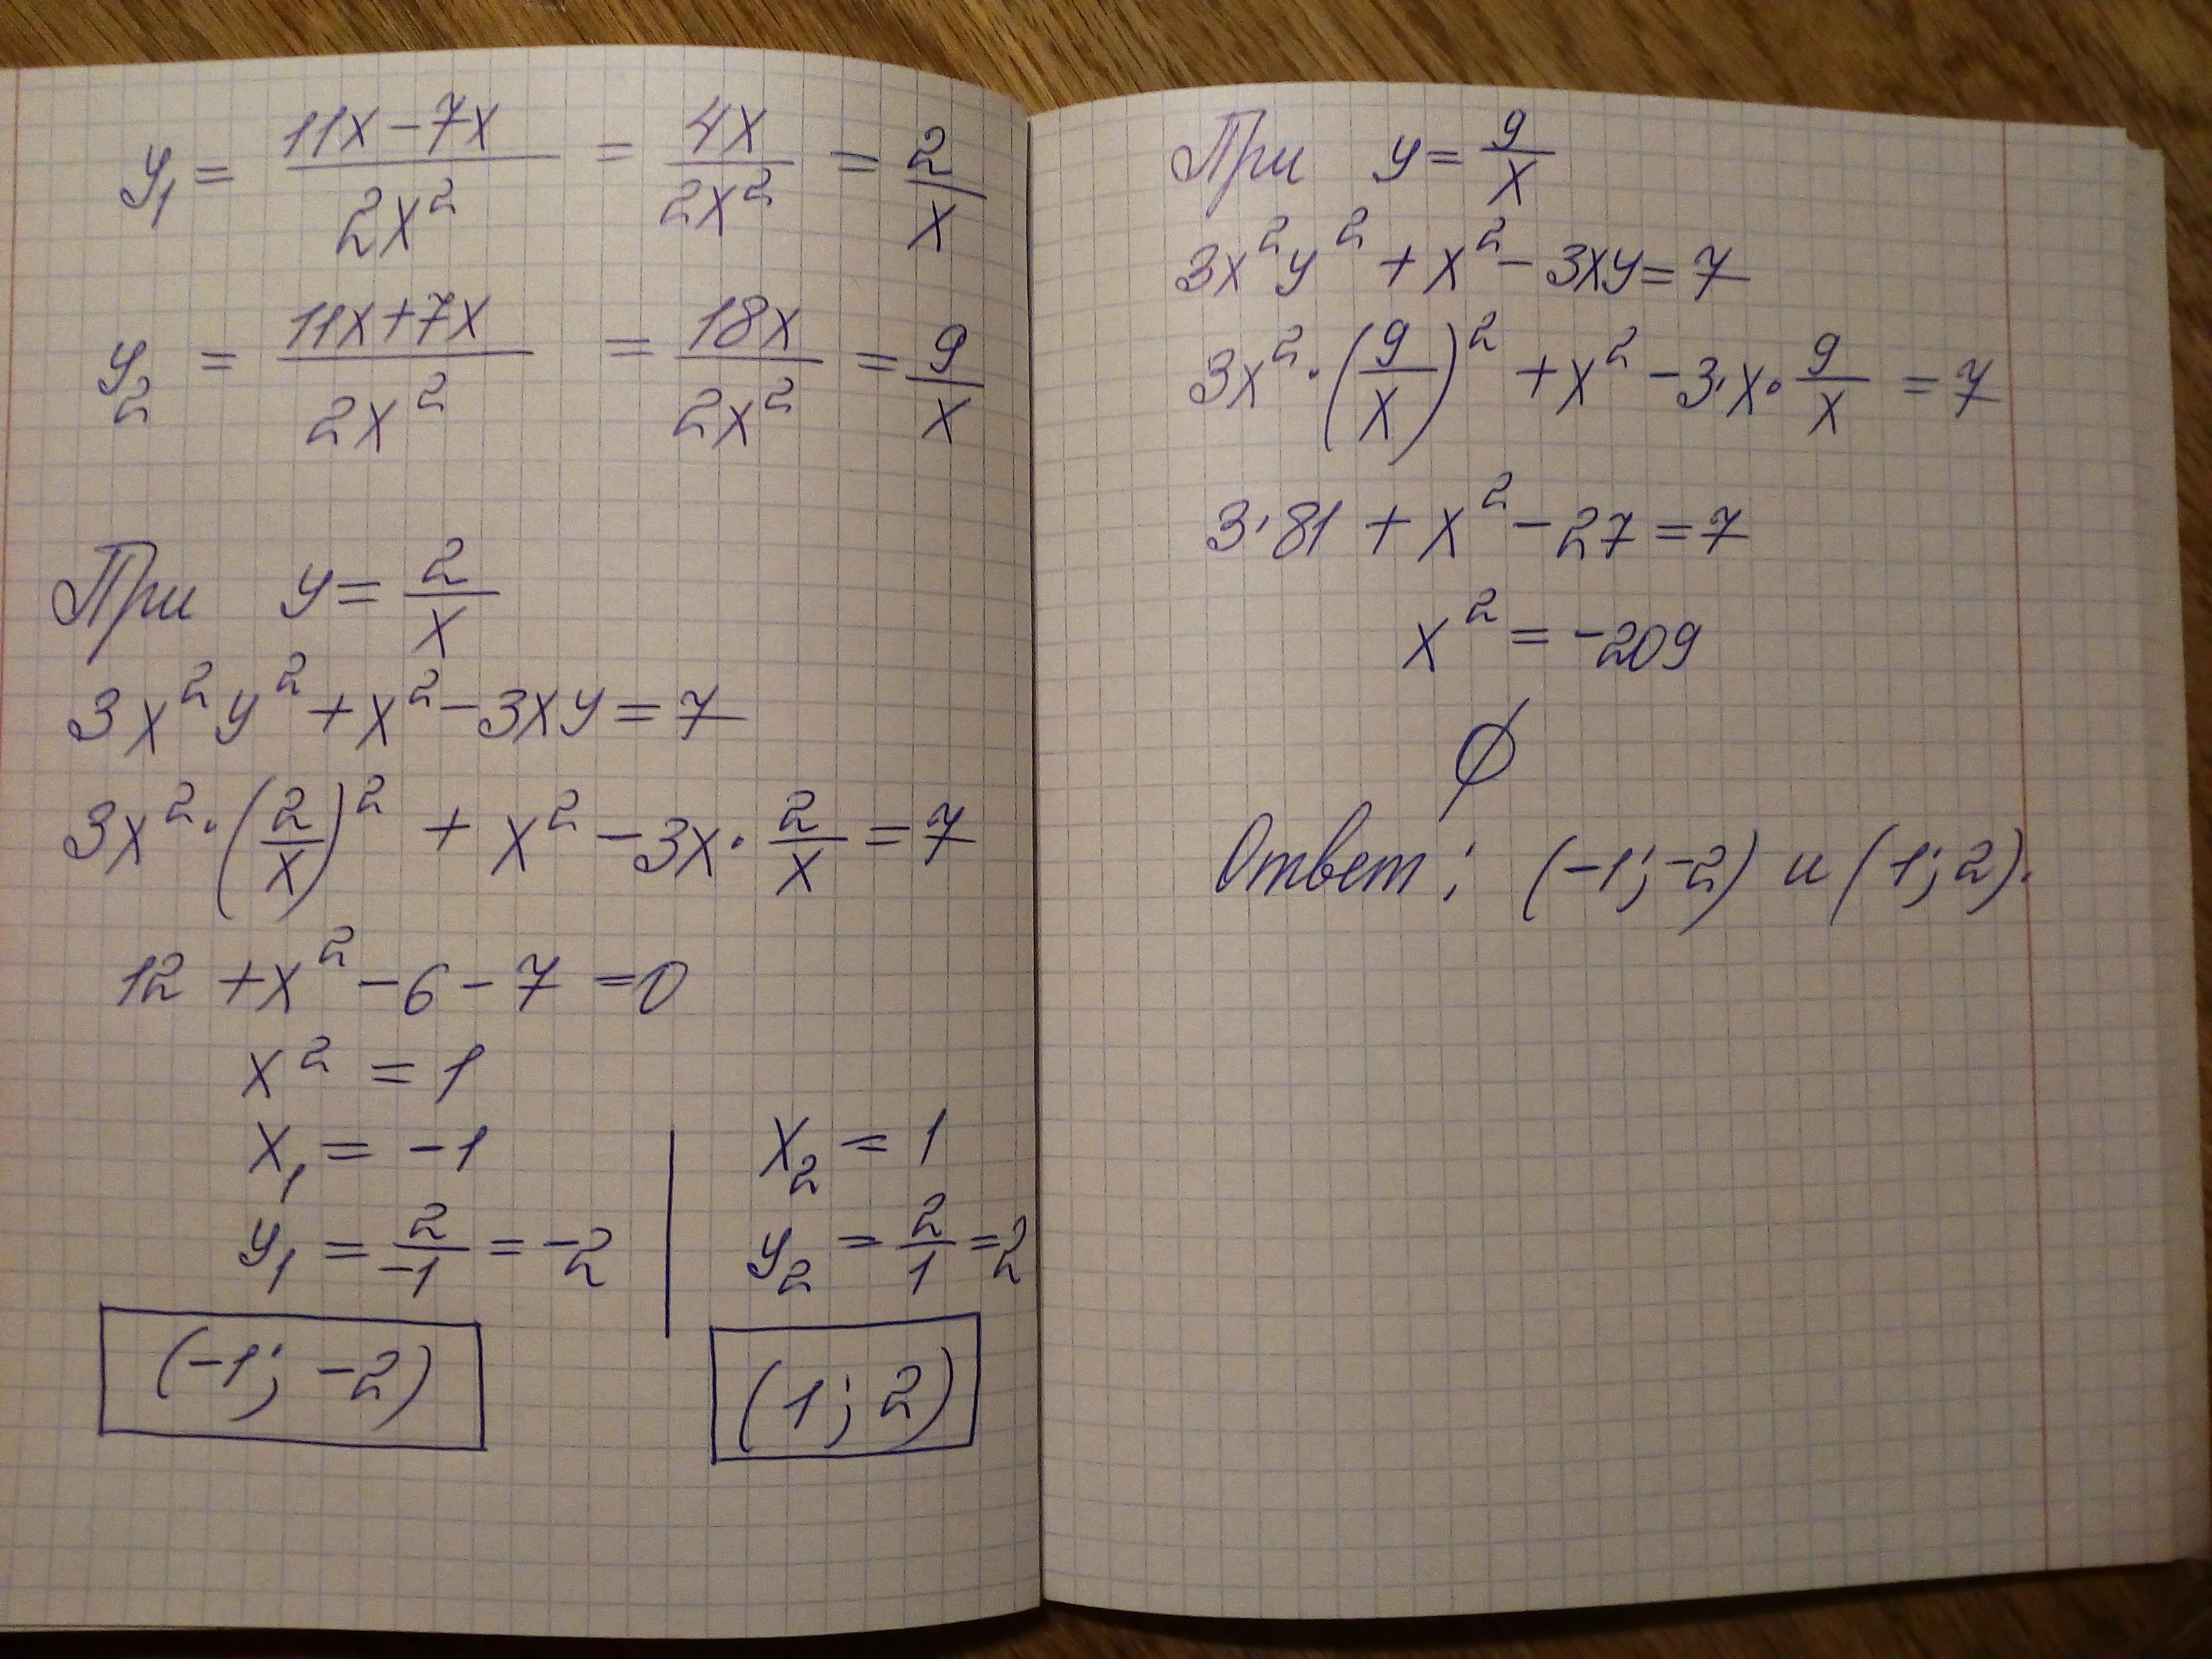 y₁ = (11x - 7x)/(2x²) = 4x/(2x²) = 2/x
y₂ = (11x + 7x)/(2x²) = 18x/(2x²) = 9/x
При y = 2/x
3x²y² + x² - 3xy = 7
3x² · (2/x)² + x² - 3x · 2/x = 7
12 + x² - 6 - 7 = 0
x² = 1
x₁ = -1 | x₂ = 1
y₁ = 2/-1 = -2 | y₂ = 2/1 = 2
(-1; -2) (1; 2)
При y = 9/x
3x²y² + x² - 3xy = 7
3x² · (9/x)² + x² - 3·x · 9/x = 7
3·81 + x² - 27 = 7
x² = -209
∅
Ответ: (-1; -2) и (1; 2).